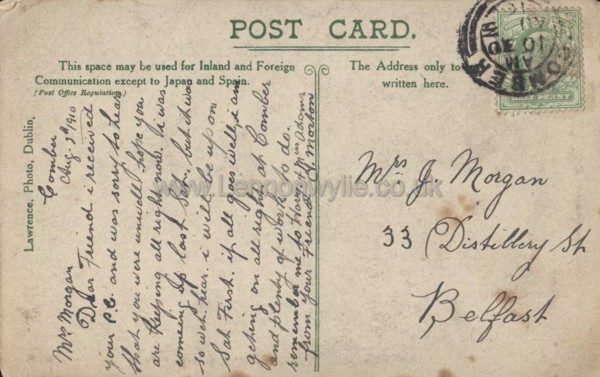 POST CARD.
This space may be used for Inland and Foreign
Communication except to Japan and Spain.
(Post Office Regulation)
The Address only to
written here.
Lawrence, Photo, Dublin.
COMBER
10 30 AM
AU
10
HALF PENNY
Comber
Aug. 3rd 1910
Mrs Morgan
Dear Friend i received
your P.C. and was sorry to hear
that you were unwell hope you
are keeping all right now. i was
coming up last Satr. but it was
so wet. hear. i will be up on
Sat First. if all goes well i am
getting on all right at Comber
and plenty of work to do.
remember me to Harry & Wm Adams
from your Friend J Morton
Mrs J. Morgan
33 Distillery St
Belfast
www.Lennonwylie.co.uk